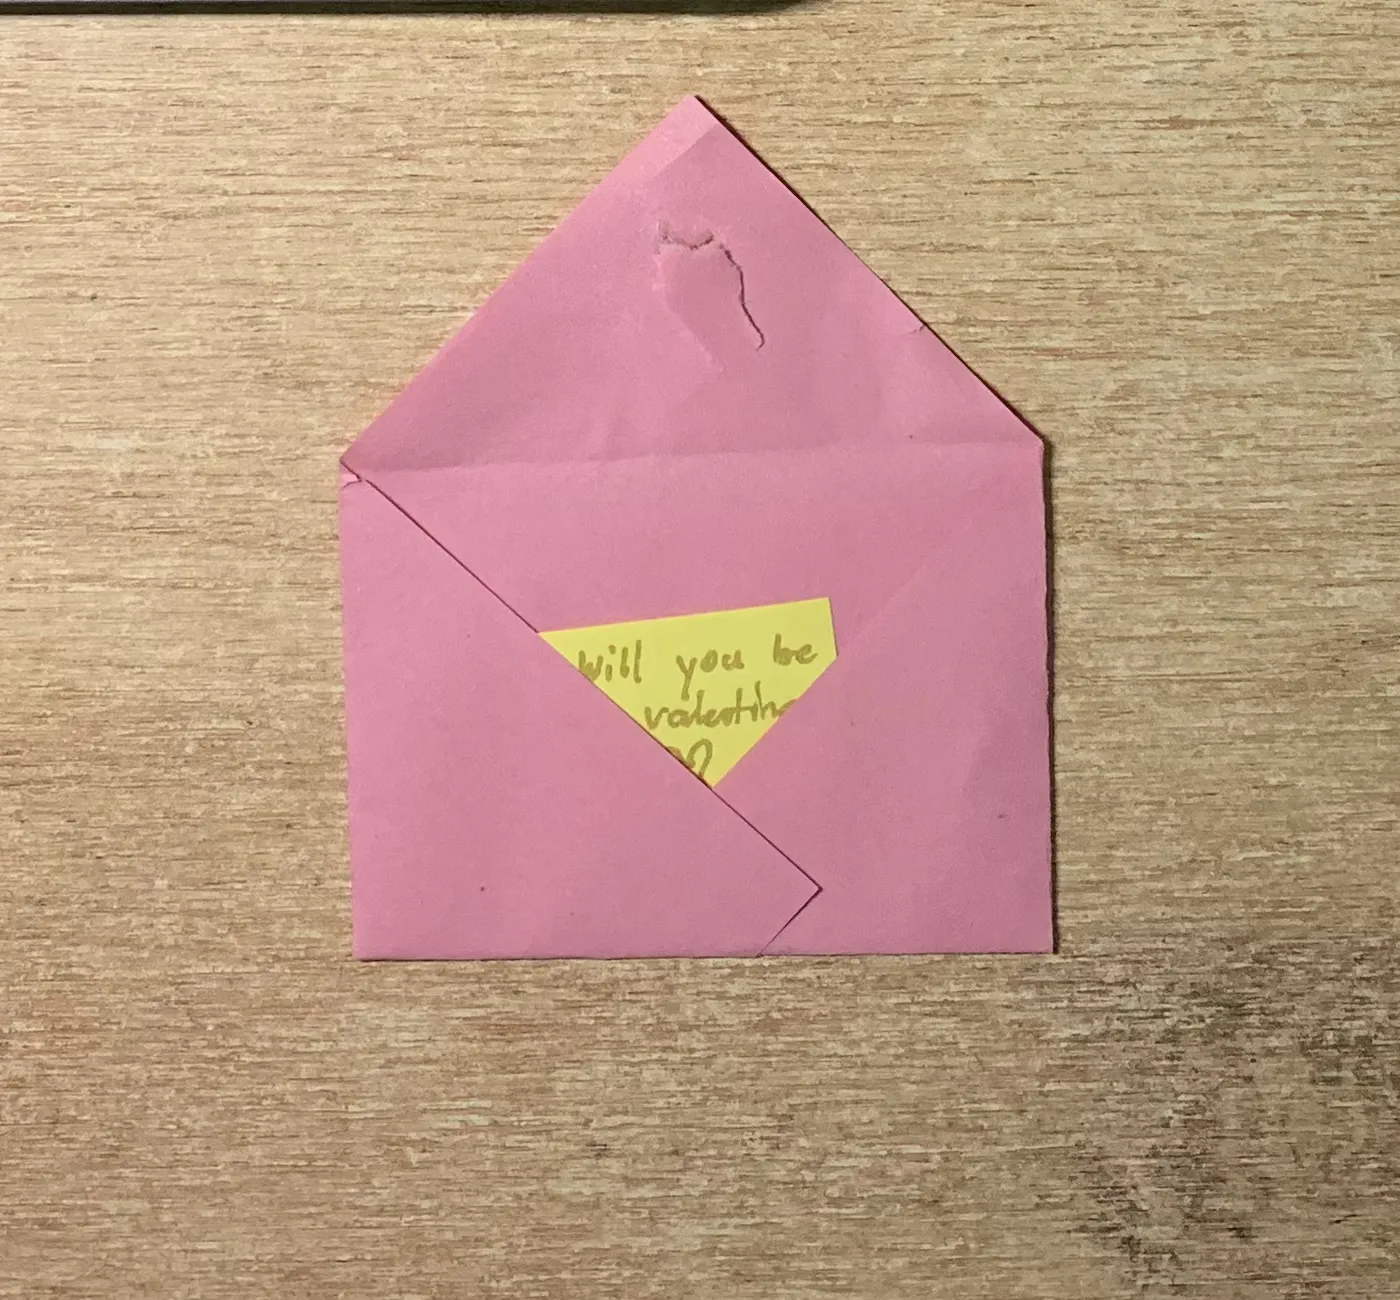 Will you be
valentin
??